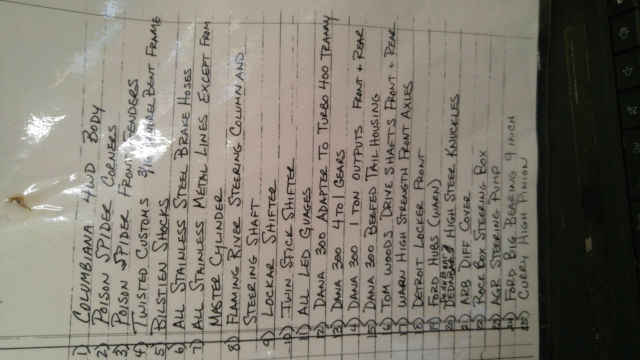 1) COLUMBIANA 4WD BODY
2) POISON SPIDER CORNERS
3) POISON SPIDER FRONT FENDERS
4) TWISTED CUSTOMS 3/16 WIRE BENT FRAME
5) BILSTIEN SHOCKS
6) ALL STAINLESS STEEL BRAKE HOSES
7) ALL STAINLESS METAL LINES EXCEPT FROM
MASTER CYLINDER
8) FLAMING RIVER STEERING COLUMN AND
STEERING SHAFT
9) LOCKAR SHIFTER
10) TWIN STICK SHIFTER
11) ALL LED GUAGES
12) DANA 300 ADAPTER TO TURBO 400 TRANNY
13) DANA 300 4 TO 1 GEARS
14) DANA 300 1 TON OUTPUTS FRONT + REAR
15) DANA 300 BEEFED TAIL HOUSING
16) TOM WOODS DRIVE SHAFTS FRONT + REAR
17) WARN HIGH STRENGTH FRONT AXLES
18) DETROIT LOCKER FRONT
19) FORD HUBS (WARN)
20) HIGH STEER KNUCKLES
21) ARB DIFF COVER
22) ROCK BOX STEERING BOX
23) AGR STEERING PUMP
24) FORD BIG BEARING 9 INCH
25) CURRY HIGH PINION